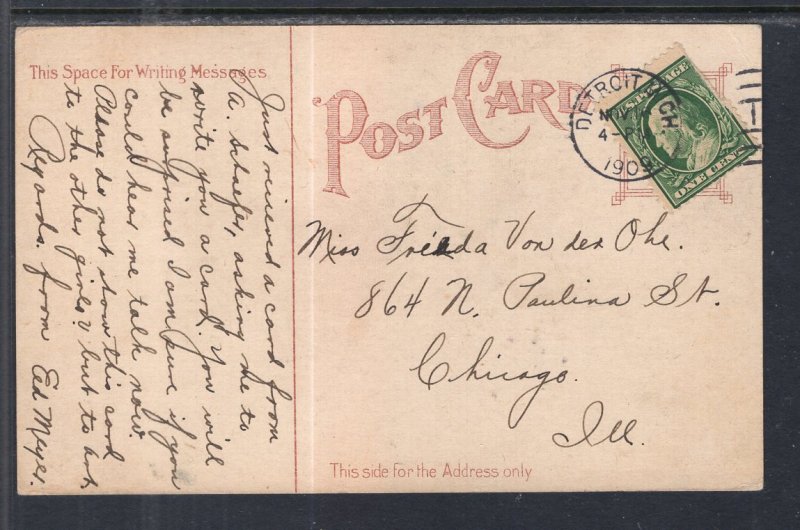 This Space For Writing Messages
POST CARD
Just received a card from
A. Schaefer, asking me to
write you a card. You will
be surprised I am sure if you
could hear me talk now.
Please do not show this card
to the other girls? but to
Regards. from Ed Meyer.
DETROIT
NOV
4-P
1909
CH
U.S. POSTAGE
ONE CENT
Miss Frieda Von der Ohe.
864 N. Paulina St.
Chicago.
Ill.
This side for the Address only